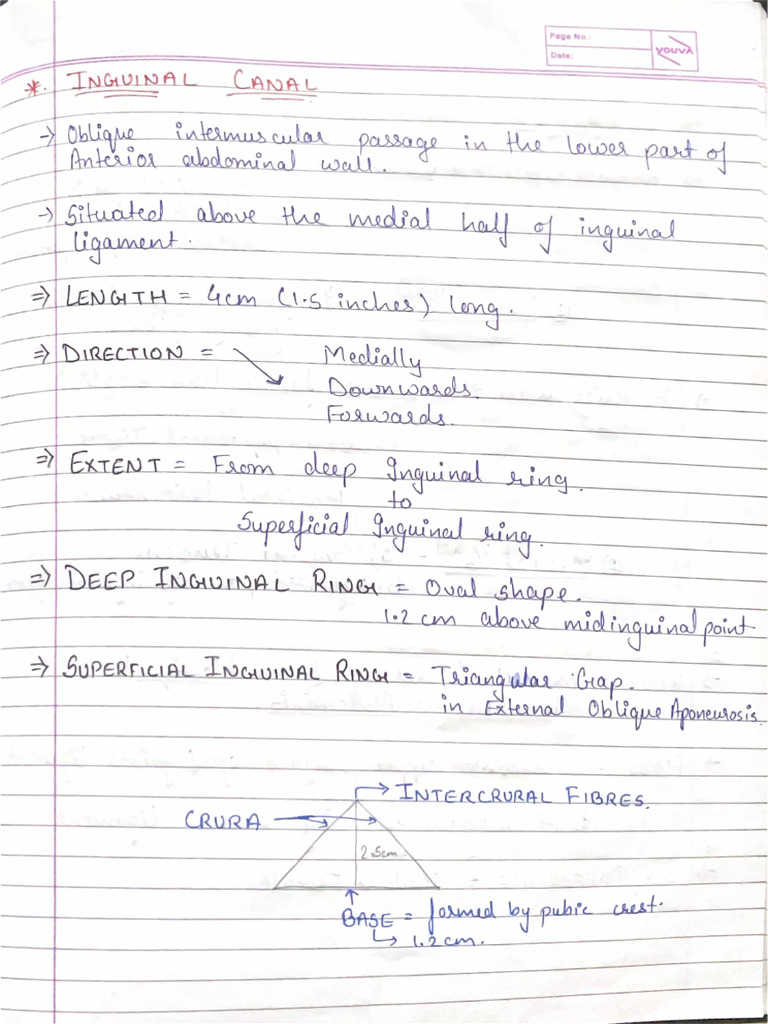 Page No.:
Date:
YOUVA
*. INGUINAL CANAL
→ Oblique intermuscular passage in the lower part of
Anterior abdominal wall.
→ Situated above the medial half of inguinal
ligament.
⇒ LENGTH = 4cm (1.5 inches) long.
⇒ DIRECTION = ↘ Medially
Downwards.
Forwards.
⇒ EXTENT = From deep Inguinal ring.
to
Superficial Inguinal ring.
⇒ DEEP INGUINAL RING = Oval shape.
1.2 cm above midinguinal point
⇒ SUPERFICIAL INGUINAL RING = Triangular Gap.
in External Oblique Aponeurosis.
→ INTERCRURAL FIBRES.
CRURA
2.5cm
BASE = formed by pubic crest.
↳ 1.2cm.